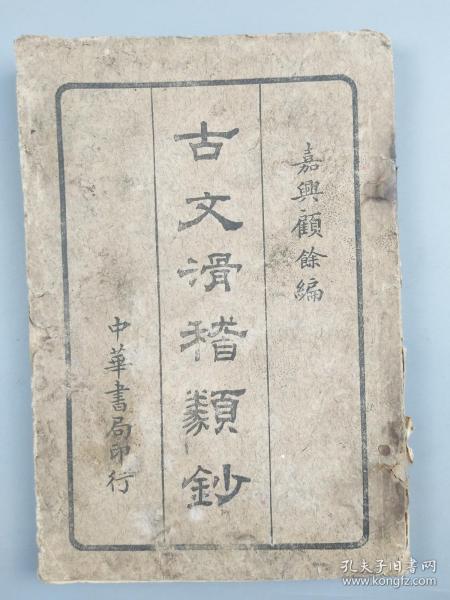 嘉興顧餘編
古文滑稽類鈔
中華書局印行
孔夫子旧书网
www.kongfz.com